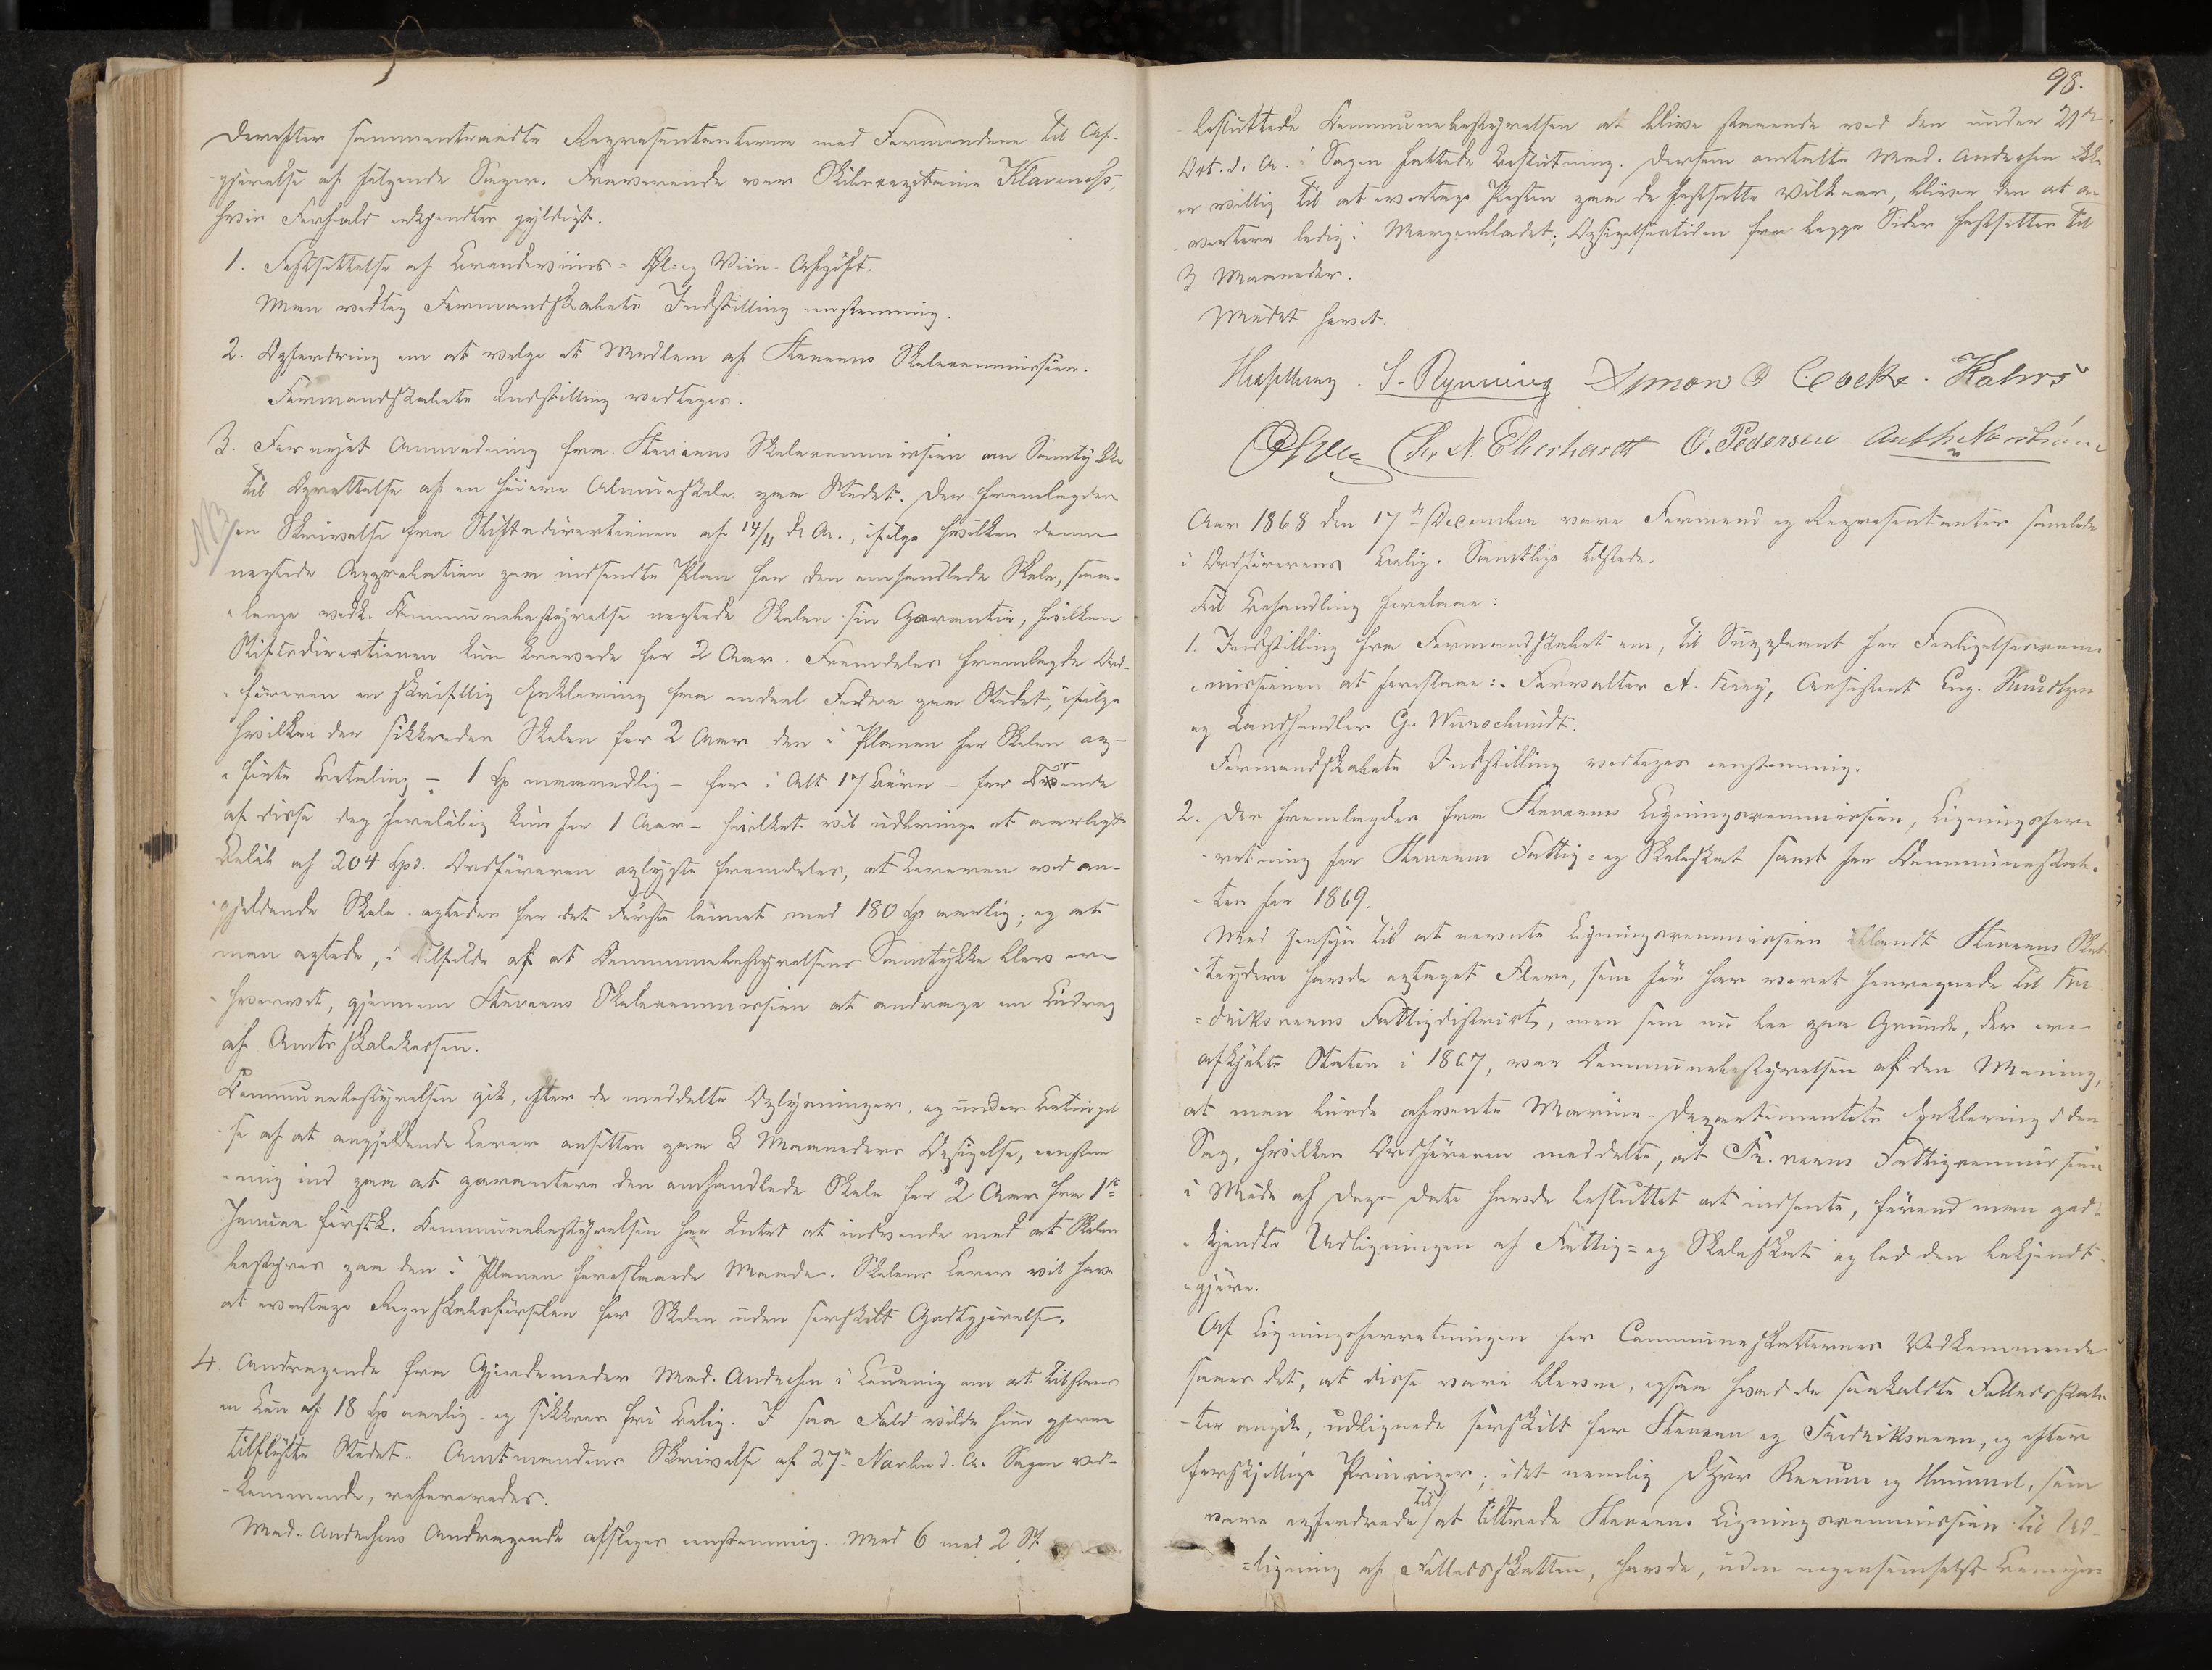 Derefter sammentraadte Repræsentanterne med Formændene til Af-
gjørelse af følgende Sager. Fraværende var Skibscapitaine Klaveness,
hvis Forfald erkjendtes gyldigt.
1. Fastsættelse af Brændeviins- Øl- og Viin-Afgift.
Man vedtog Formandskabets Indstilling eenstemmig.
2. Opfordring om at vælge et Medlem af Stavens Skolecommission.
Formandskabets Indstilling vedtoges.
3. Fornyet Anmodning fra Stavens Skolecommission om Samtykke
NB
til Oprettelse af en høiere Almueskole paa Stedet. Der fremlagdes
en Skrivelse fra Stiftsdirectionen af 14/11 d. A., ifølge hvilken denne
negtede Approbation paa indsendte Plan for den omhandlede Skole, saa-
længe vedk. Communebestyrelse negtede Skolen sin Garantie, hvilken
Stiftsdirectionen kun krævede for 2 Aar. Fremdeles fremlagde Ord-
føreren en skriftlig Erklæring fra endeel Fædre paa Stedet, ifølge
hvilken der sikkredes Skolen for 2 Aar den i Planen for Skolen op-
førte Betaling - 1 Sp maanedlig - for i Alt 17 Børn - for
af disse dog foreløbig kun for 1 Aar - hvilket vil udbringe et aarligt
Beløb af 204 Spd. Ordføreren oplyste fremdeles, at Læreren ved an-
gjældende Skole agtedes for det Første lønnet med 180 Sp aarlig; og at
man agtede, i Tilfælde af at Communebestyrelsens Samtykke blev er-
hvervet, gjennem Stavens Skolecommission at andrage om Bidrag
af Amtsskolekassen.
Communebestyrelsen gik, efter de meddelte Oplysninger, og under Betingel-
se af at angjældende Lærer ansættes paa 3 Maaneders Opsigelse, eenstem-
mig ind paa at garantere den omhandlede Skole for 2 Aar fra 1ste
Januar førstk. Communebestyrelsen har Intet at indvende mod at Skolen
bestyres paa den i Planen foreslaaede Maade. Skolens Lærer vil have
at overtage Regnskabsførselen for Skolen uden særskilt Godtgjørelse.
4. Andragende fra Gjordemoder Mad. Andersen i om at tilstaaes
en Løn af 18 Sp aarlig og sikkres fri Bolig. I saa Fald vilde hun gjerne
tilflytte Stedet. Amtmandens Skrivelse af 27de Novbr d. A. Sagen ved-
kommende, refereredes.
Mad. Andersens Andragende afsloges eenstemmig. Med 6 mod 2 St.
98.
besluttede Communebestyrelsen at blive staaende ved den under 29de
Oct. d. A. i Sagen fattede Beslutning. Dersom ansatte Mad. Andersen ikke
er villig til at overtage Posten paa de fastsatte Vilkaar, bliver den at a-
vertere ledig i Morgenbladet; Opsigelsestiden fra begge Sider fastsættes til
3 Maaneder.
Mødet hævet.
S. Rynning Simon Cocke. Kahrs
Olsen Chr. N. Eberhardt O. Pedersen
Aar 1868 den 17de December vare Formænd og Repræsentanter samlede
i Ordførerens Bolig. Samtlige tilstede.
Til Behandling forelaae:
1. Indstilling fra Formandskabet om, til Suppleant for Forligelsescom-
missionen at foreslaae: Forvalter A. Assistent Eng. Knudsen
og Landhandler G. Wunschmidt.
Formandskabets Indstilling vedtoges eenstemmig.
2. Der fremlagdes fra Stavens Ligningscommission, Ligningsfor-
retning for Stavern Fattig- og Skoleskat samt for Communeskat-
ten for 1869.
Med Hensyn til at nævnte Ligningscommission iblandt Stavens Skat-
teydere havde optaget Flere, som før har været henregnede til Fre-
driksværns Fattigdistrict, men som nu boe paa Grunde, der ere
afkjøbte Staten i 1867, var Communebestyrelsen af den Mening,
at man burde afvente Marine-Departementets Erklæring i den
Sag, hvilken Ordføreren meddelte, at Fr.værns Fattigcommission
i Møde af Dags Dato havde besluttet at indhente, førend man god-
kjendte Udligningen af Fattig- og Skoleskat og lod den bekjendt-
gjøre.
Af Ligningsforretningen for Communeskatternes Vedkommende
saaes det, at disse vare blevne, ogsaa hvad de saakaldte Fællesskat-
ter angik, udlignede særskilt for Stavern og Fredriksværn, og efter
forskjellige Principer; idet nemlig Dhrr Raeum og Hummel, som
vare opfordrede til at tiltræde Stavens Ligningscommission til Ud-
ligning af Fællesskatten, havde, uden nogensomhelst